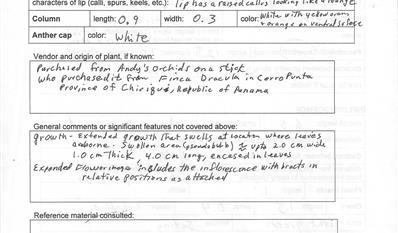 characters of lip (calli, spurs, keels, etc.): lip has a raised callus looking like a
Column length: 0.9 width: 0.3 color: white with yellow
+ orange on ventral surface
Anther cap color: White
Vendor and origin of plant, if known:
Purchased from Andy's orchids on a stick
who purchased it from Finca Dracula in Cerro Punta
Province of Chiriquí, Republic of Panama
General comments or significant features not covered above:
growth - Extended growth that swells at location where leaves
are borne. Swollen area (pseudobulb) ≈ upto 2.0 cm wide
1.0 cm thick, 4.0 cm long, encased in leaves
Expanded Flowering includes the inflorescence with bracts in
relative positions as attached
Reference material consulted: